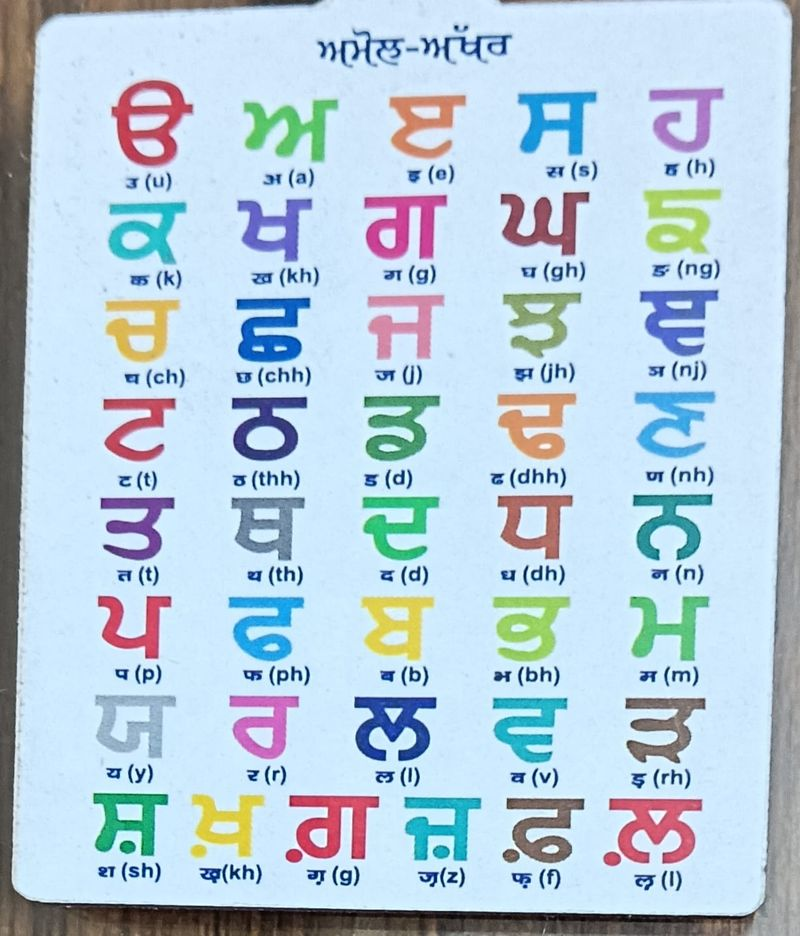 ਅਮੋਲ-ਅੱਖਰ
ੳ ਅ ੲ ਸ ਹ
उ (u) अ (a) इ (e) स (s) ह (h)
ਕ ਖ ਗ ਘ ਙ
क (k) ख (kh) ग (g) घ (gh) ङ (ng)
ਚ ਛ ਜ ਝ ਞ
च (ch) छ (chh) ज (j) झ (jh) ञ (nj)
ਟ ਠ ਡ ਢ ਣ
ट (t) ठ (thh) ड (d) ढ (dhh) ण (nh)
ਤ ਥ ਦ ਧ ਨ
त (t) थ (th) द (d) ध (dh) न (n)
ਪ ਫ ਬ ਭ ਮ
प (p) फ (ph) ब (b) भ (bh) म (m)
ਯ ਰ ਲ ਵ ੜ
य (y) र (r) ल (l) व (v) ड़ (rh)
ਸ਼ ਖ਼ ਗ਼ ਜ਼ ਫ਼ ਲ਼
श (sh) ख़(kh) ग़ (g) ज़(z) फ़ (f) ल़ (l)